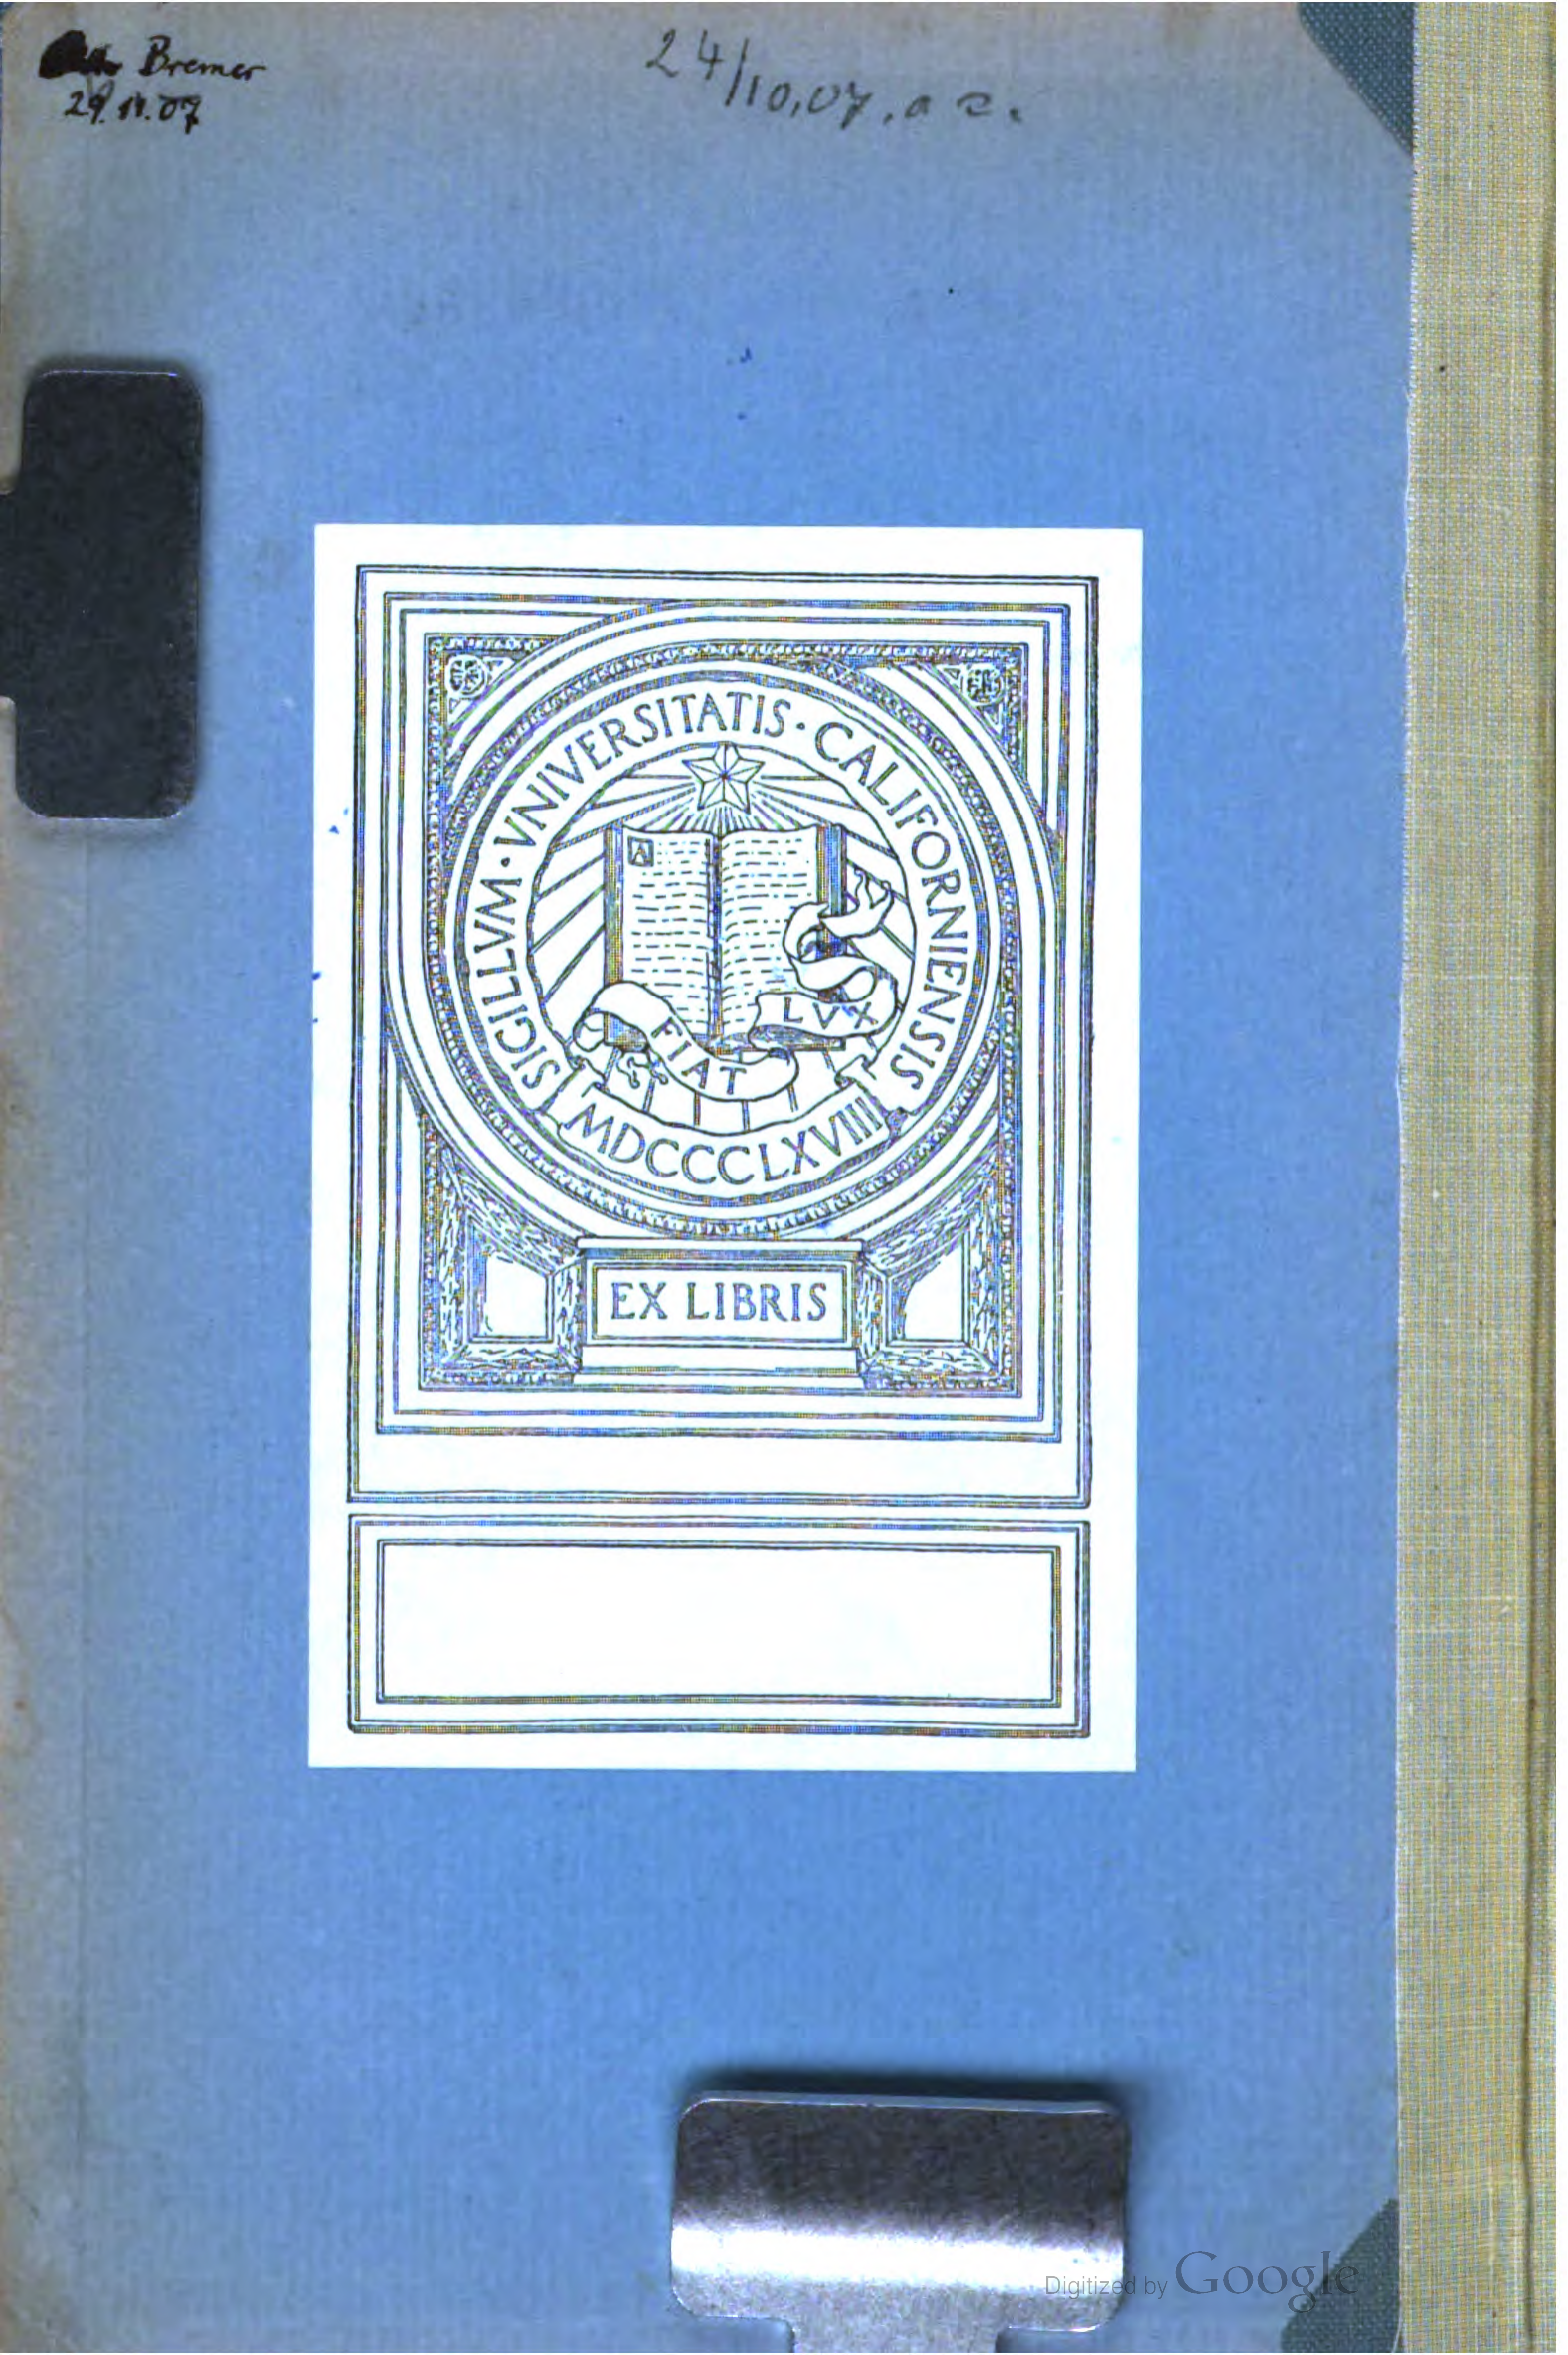 Bremer
29.11.07
24/10.07. a c.
SIGILLVM · VNIVERSITATIS · CALIFORNIENSIS
A
LVX
FIAT
MDCCCLXVIII
EX LIBRIS
Digitized by Google